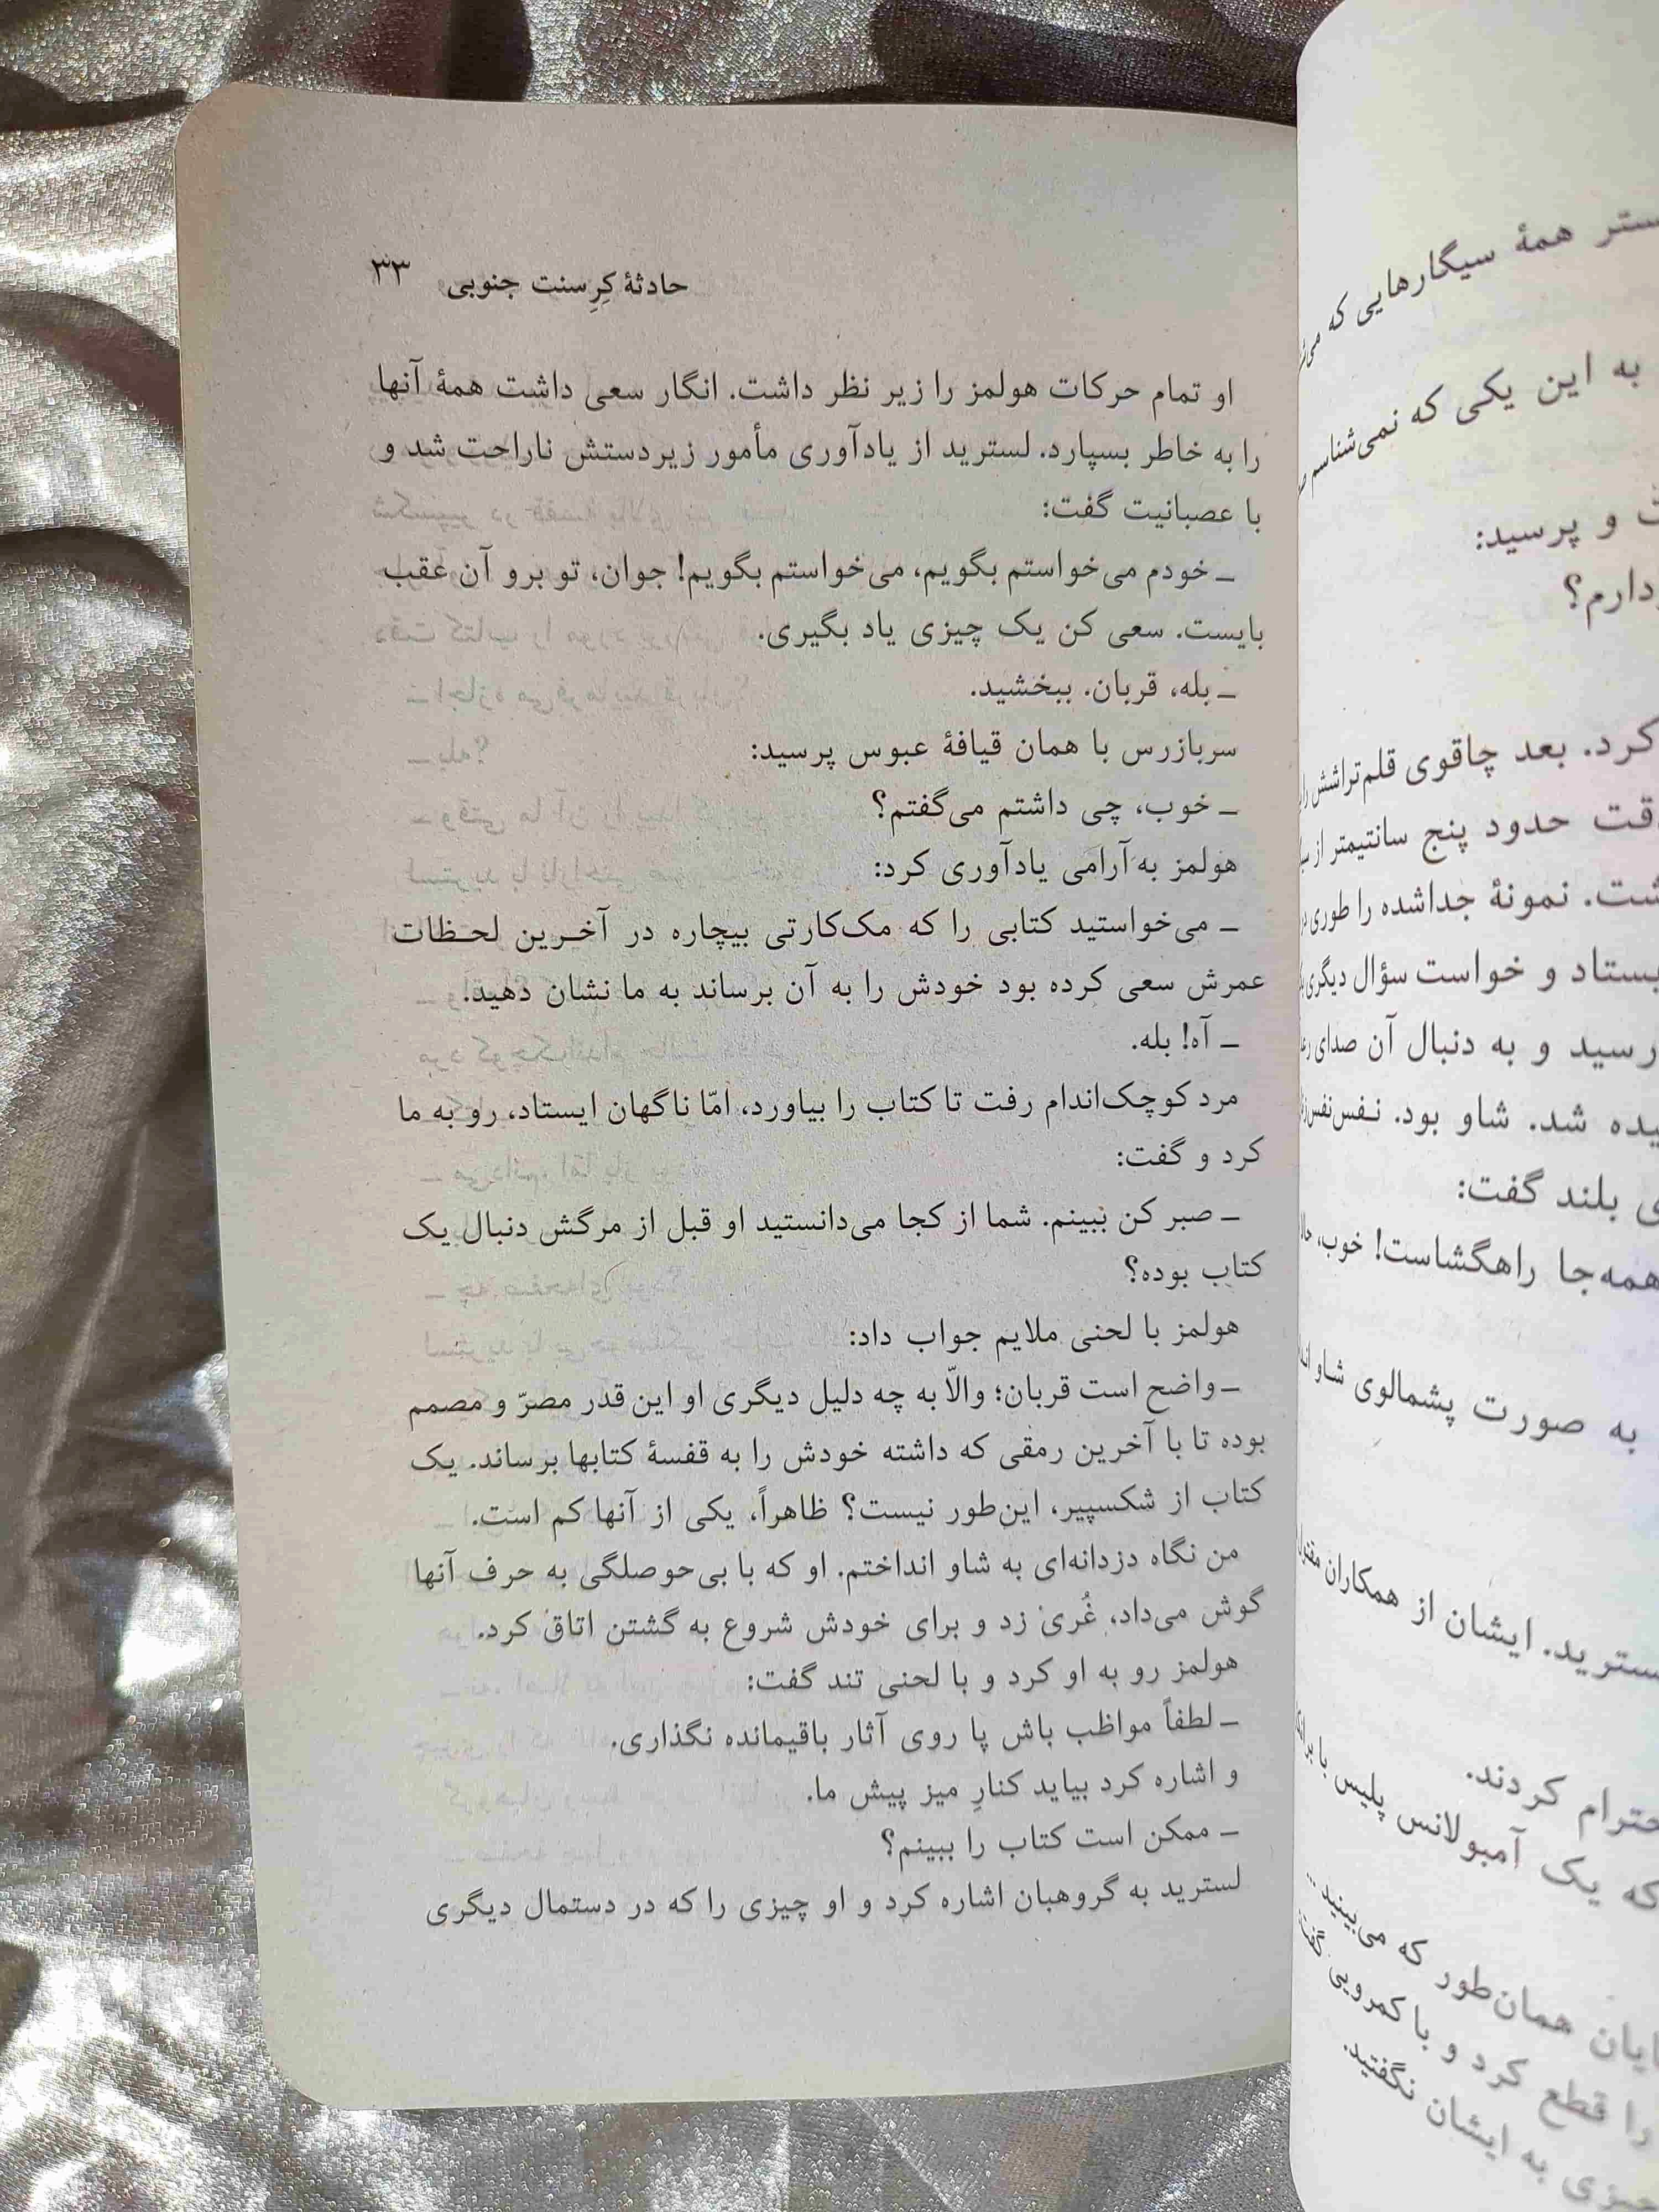 حادثهٔ کِرِسنت جنوبی ۳۳
او تمام حرکات هولمز را زیر نظر داشت. انگار سعی داشت همهٔ آنها
را به خاطر بسپارد. لسترید از یادآوری مأمور زیردستش ناراحت شد و
با عصبانیت گفت:
ـ خودم می‌خواستم بگویم، می‌خواستم بگویم! جوان، تو برو آن عقب
بایست. سعی کن یک چیزی یاد بگیری.
ـ بله، قربان. ببخشید.
سربازرس با همان قیافهٔ عبوس پرسید:
ـ خوب، چی داشتم می‌گفتم؟
هولمز به آرامی یادآوری کرد:
ـ می‌خواستید کتابی را که مک‌کارتی بیچاره در آخرین لحظات
عمرش سعی کرده بود خودش را به آن برساند به ما نشان دهید.
ـ آه! بله.
مرد کوچک‌اندام رفت تا کتاب را بیاورد، امّا ناگهان ایستاد، رو به ما
کرد و گفت:
ـ صبر کن ببینم. شما از کجا می‌دانستید او قبل از مرگش دنبال یک
کتاب بوده؟
هولمز با لحنی ملایم جواب داد:
ـ واضح است قربان؛ والّا به چه دلیل دیگری او این قدر مصرّ و مصمم
بوده تا با آخرین رمقی که داشته خودش را به قفسهٔ کتابها برساند. یک
کتاب از شکسپیر، این‌طور نیست؟ ظاهراً، یکی از آنها کم است.
من نگاه دزدانه‌ای به شاو انداختم. او که با بی‌حوصلگی به حرف آنها
گوش می‌داد، غُری زد و برای خودش شروع به گشتن اتاق کرد.
هولمز رو به او کرد و با لحنی تند گفت:
ـ لطفاً مواظب باش پا روی آثار باقیمانده نگذاری.
و اشاره کرد بیاید کنارِ میز پیش ما.
ـ ممکن است کتاب را ببینم؟
لسترید به گروهبان اشاره کرد و او چیزی را که در دستمال دیگری
همهٔ سیگارهایی که
به این یکی که نمی‌شناسم
و پرسید:
کرد. بعد چاقوی قلم‌تراشش
حدود پنج سانتیمتر از
نمونهٔ جداشده را طوری
و خواست سؤال دیگری
رسید و به دنبال آن صدای
شد. شاو بود. نفس‌نفس
بلند گفت:
همه‌جا راهگشاست! خوب،
به صورت پشمالوی شاو
ایشان از همکاران
کردند.
که یک آمبولانس پلیس با
همان‌طور که می‌بینید
را قطع کرد و با کمرویی
به ایشان نگفتید.